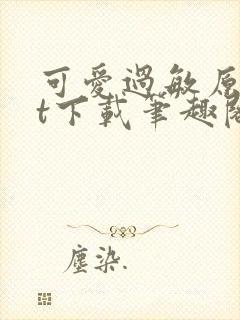 可愛過敏原
t下載筆趣閣
塵染.